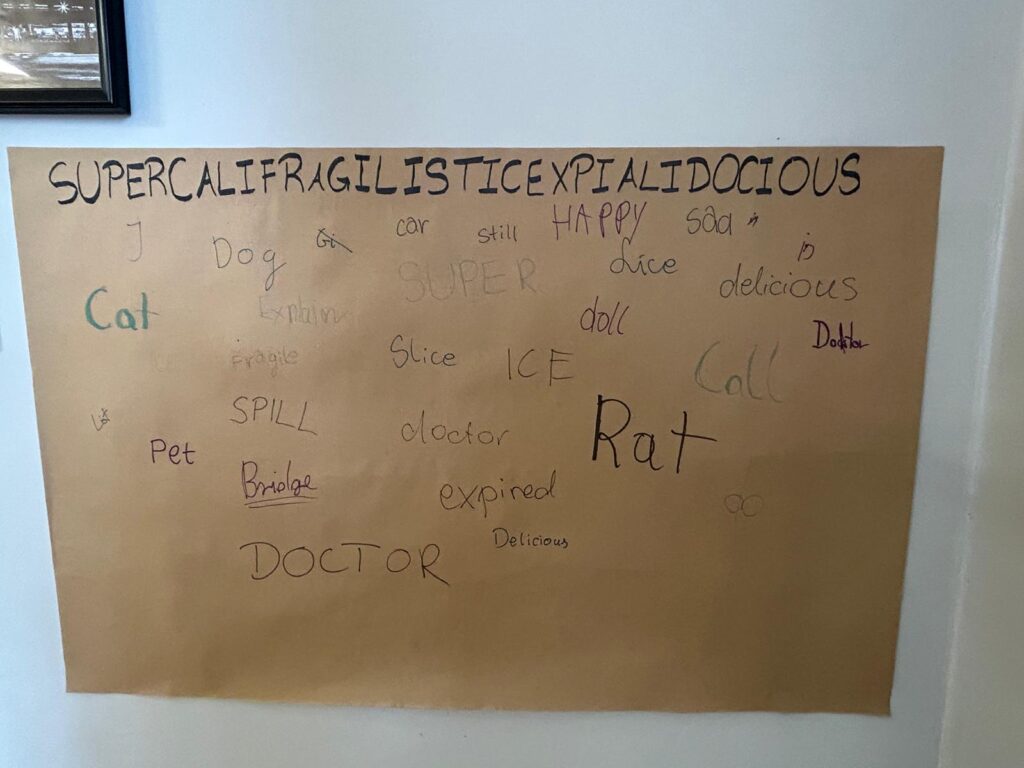 SUPERCALIFRAGILISTICEXPIALIDOCIOUS
car still HAPPY sad
Dog
Lice
SUPER delicious
Cat Explain doll
Doctor
Fragile Slice ICE Call
SPILL doctor Rat
Pet
Bridge expired
go
Delicious
DOCTOR